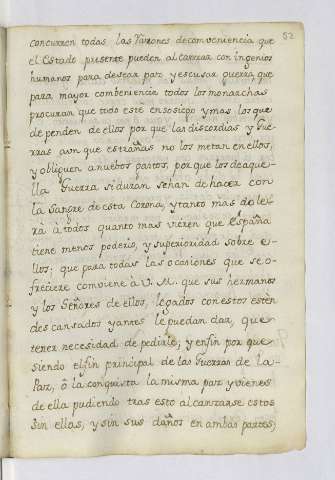 52
concurren todas las Razones de conveniencia que
el Estado presente pueden alcanzar con ingenios
humanos para desear paz y escusar guerra, que
para mayor combeniencia todos los monarchas
procuran que todo este en sosiego y mas los que
dependen de ellos por que las discordias y Gue-
rras aun que estrañas no los metan en ellos,
y obliguen a nuebos gastos, por que los de aque-
lla Guerra si duran se han de hacer con
la Sangre de esta Corona, y tanto mas dolera
ra à todos quanto mas vieren que España
tiene menos poderio, y superioridad sobre e-
llos: que para todas las ocasiones que se o-
freciere comviene à V. M. que sus hermanos
y los Señores de ellos, legados con estos esten
descansados y antes le puedan dar, que
tener necesidad de pedirle; y enfin por que
siendo el fin principal de las Guerras de la
Paz, ô la conquista la misma paz y vienes
de ella pudiendo tras esto alcanzarse estos
Sin ellas, y sin sus daños en ambas partes;